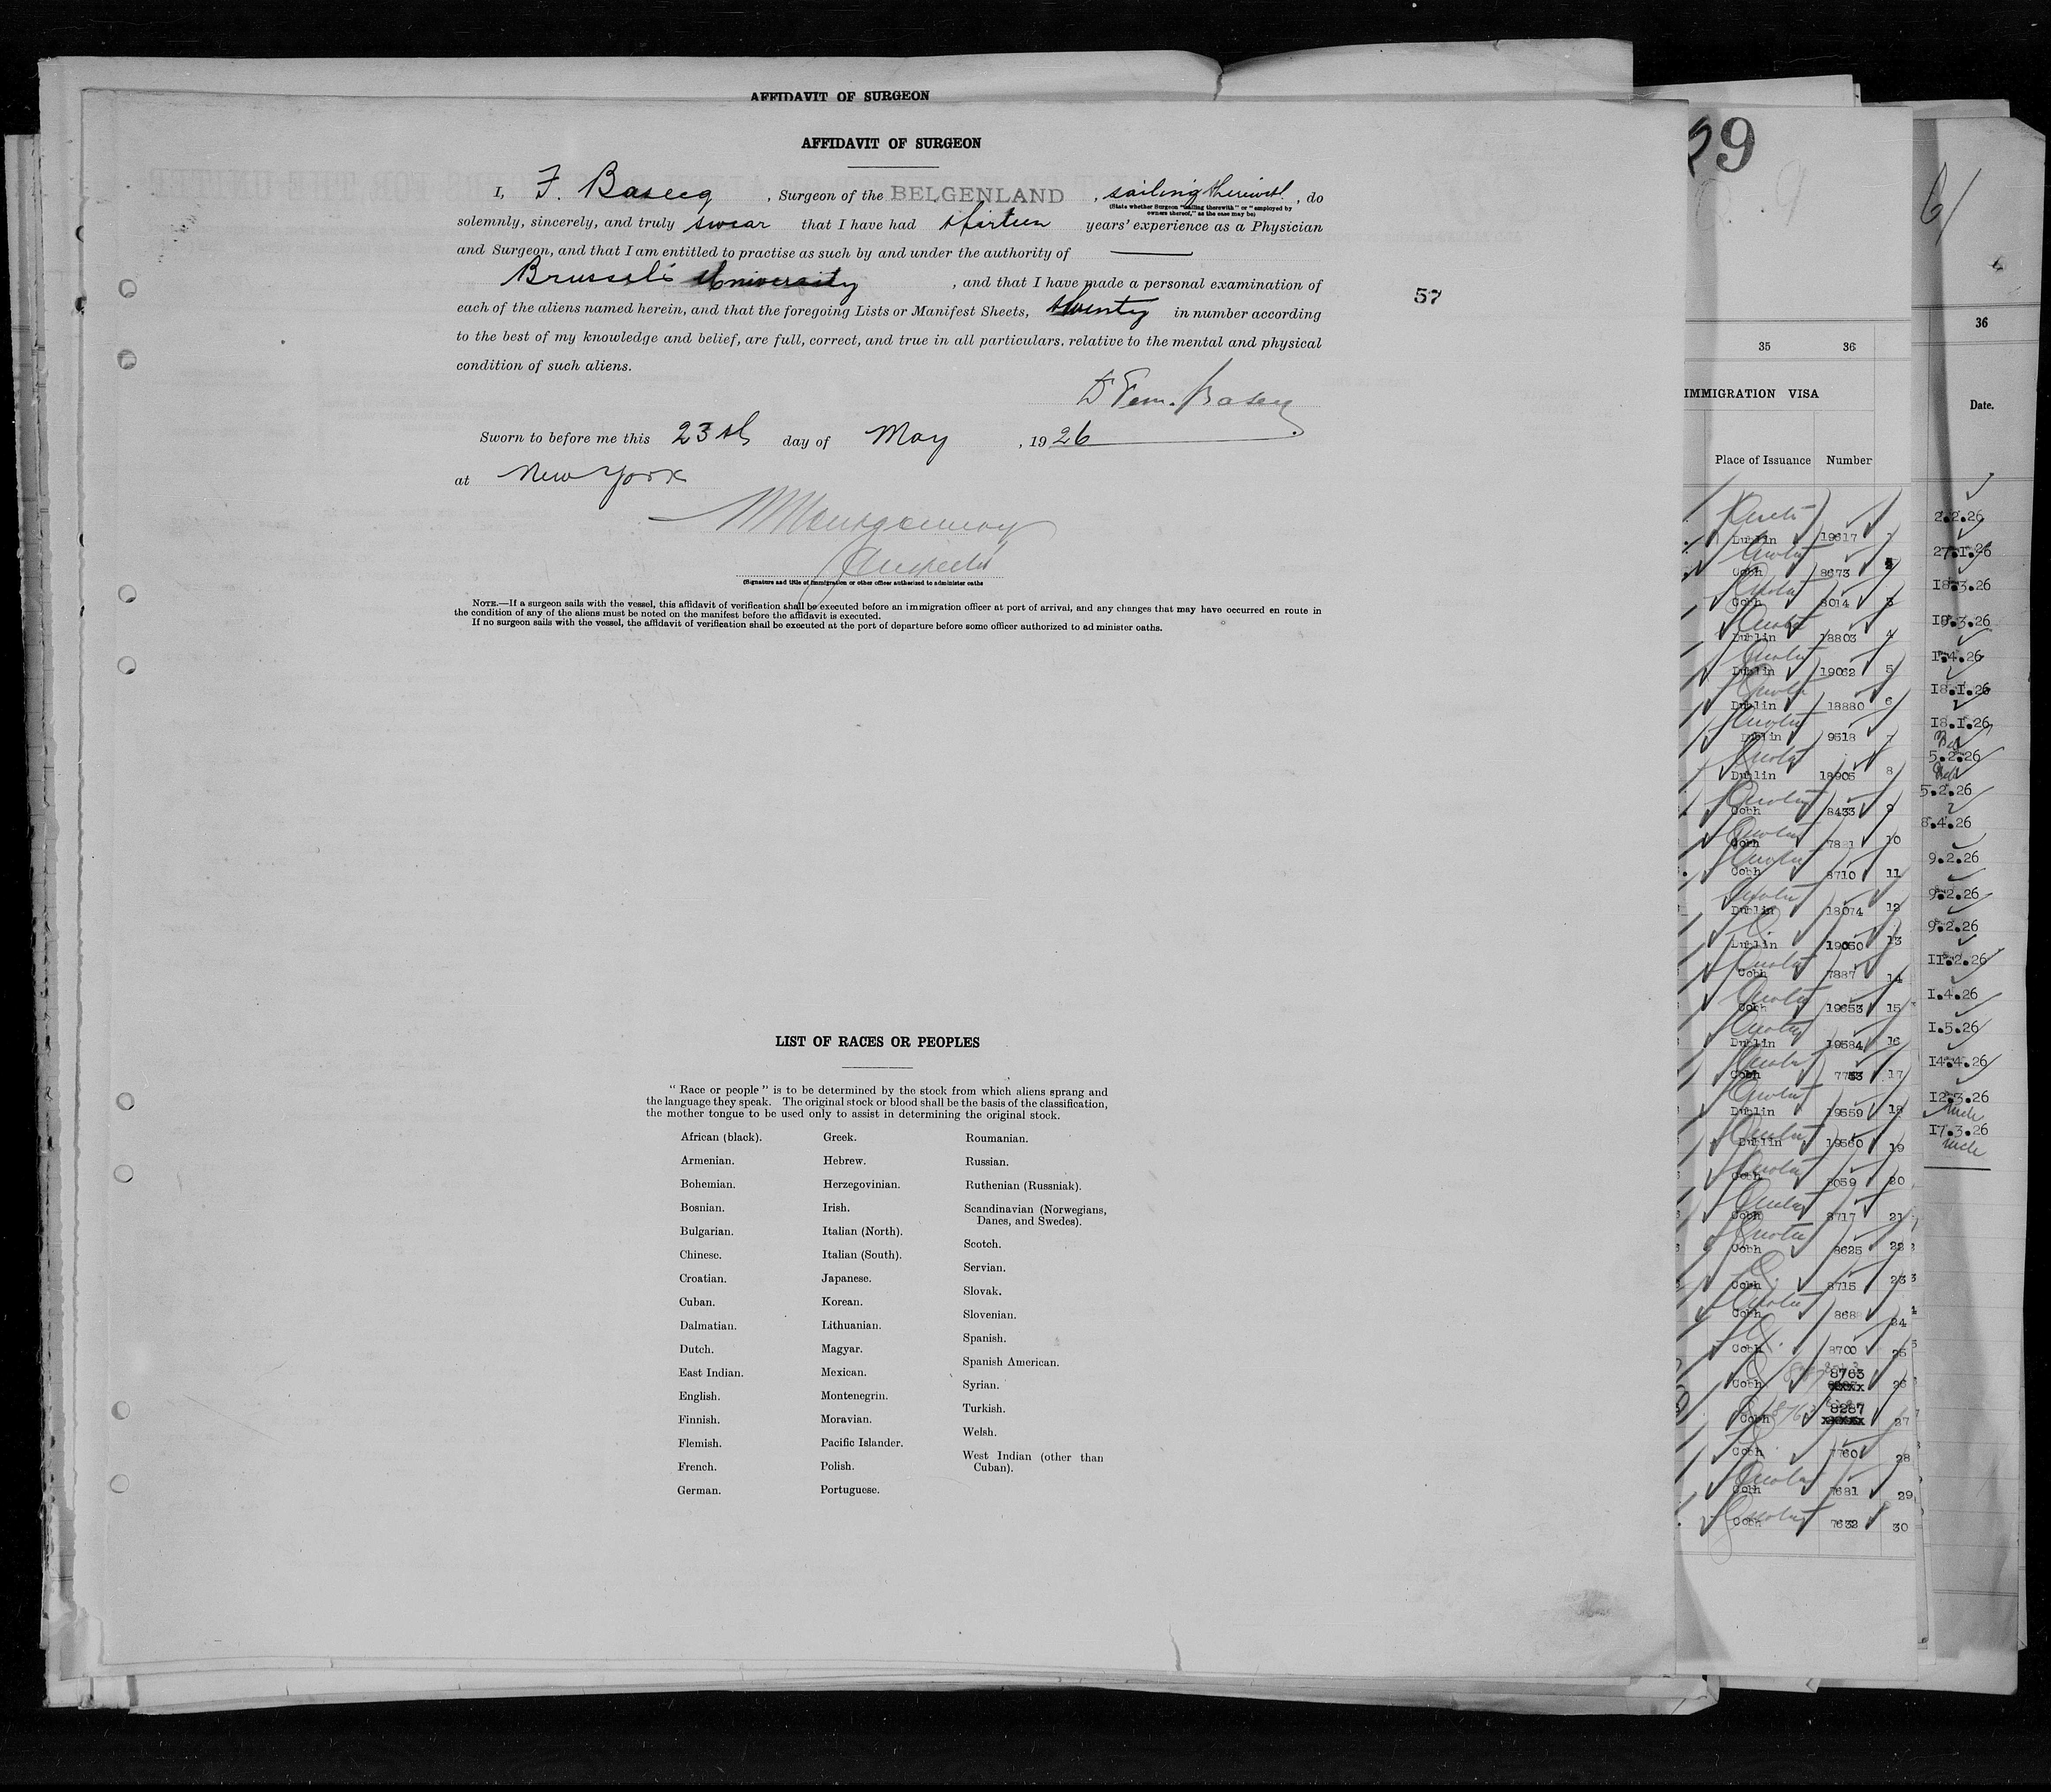 AFFIDAVIT OF SURGEON
AFFIDAVIT OF SURGEON
I, F. Baseeg, Surgeon of the BELGENLAND, sailing therewith, do
(State whether Surgeon "sailing therewith" or "employed by
owners thereof," as the case may be)
solemnly, sincerely, and truly swear that I have had years' experience as a Physician
and Surgeon, and that I am entitled to practise as such by and under the authority of
Brussels University, and that I have made a personal examination of
each of the aliens named herein, and that the foregoing Lists or Manifest Sheets, twenty in number according
to the best of my knowledge and belief, are full, correct, and true in all particulars. relative to the mental and physical
condition of such aliens.
Sworn to before me this 23rd day of May, 1926
at New York
Montgomery
Inspector
(Signature and title of immigration or other officer authorized to administer oaths
NOTE.—If a surgeon sails with the vessel, this affidavit of verification shall be executed before an immigration officer at port of arrival, and any changes that may have occurred en route in
the condition of any of the aliens must be noted on the manifest before the affidavit is executed.
If no surgeon sails with the vessel, the affidavit of verification shall be executed at the port of departure before some officer authorized to ad minister oaths.
57
LIST OF RACES OR PEOPLES
"Race or people" is to be determined by the stock from which aliens sprang and
the language they speak. The original stock or blood shall be the basis of the classification,
the mother tongue to be used only to assist in determining the original stock.
African (black).
Armenian.
Bohemian.
Bosnian.
Bulgarian.
Chinese.
Croatian.
Cuban.
Dalmatian.
Dutch.
East Indian.
English.
Finnish.
Flemish.
French.
German.
Greek.
Hebrew.
Herzegovinian.
Irish.
Italian (North).
Italian (South).
Japanese.
Korean.
Lithuanian.
Magyar.
Mexican.
Montenegrin.
Moravian.
Pacific Islander.
Polish.
Portuguese.
Roumanian.
Russian.
Ruthenian (Russniak).
Scandinavian (Norwegians,
Danes, and Swedes).
Scotch.
Servian.
Slovak.
Slovenian.
Spanish.
Spanish American.
Syrian.
Turkish.
Welsh.
West Indian (other than
Cuban).
29
35 36
IMMIGRATION VISA
Place of Issuance Number
Dublin 19617 1
Cobh 8673
Cobh 8014 3
Dublin 18803 4
Dublin 19062 5
Dublin 18880 6
Dublin 9518 7
Dublin 18905 8
Cobh 8433 9
Cobh 10
Cobh 8710 11
Dublin 18074 12
Dublin 19050 13
Cobh 7887 14
Cobh 19653 15
Dublin 19584 16
Cobh 17
Dublin 19559 18
Dublin 19560 19
Cobh 8059 20
Cobh 8717 21
Cobh 8625 22
Cobh 8715 23
Cobh 24
Cobh 8700 25
Cobh 8763 26
Cobh 8287 27
Cobh 7760 28
Cobh 7681 29
Cobh 7632 30
36
Date.
2.2.26
27.1.26
18.3.26
19.3.26
1.4.26
18.1.26
18.1.26
5.2.26
5.2.26
8.4.26
9.2.26
9.2.26
9.2.26
11.2.26
1.4.26
1.5.26
14.4.26
12.3.26
17.3.26